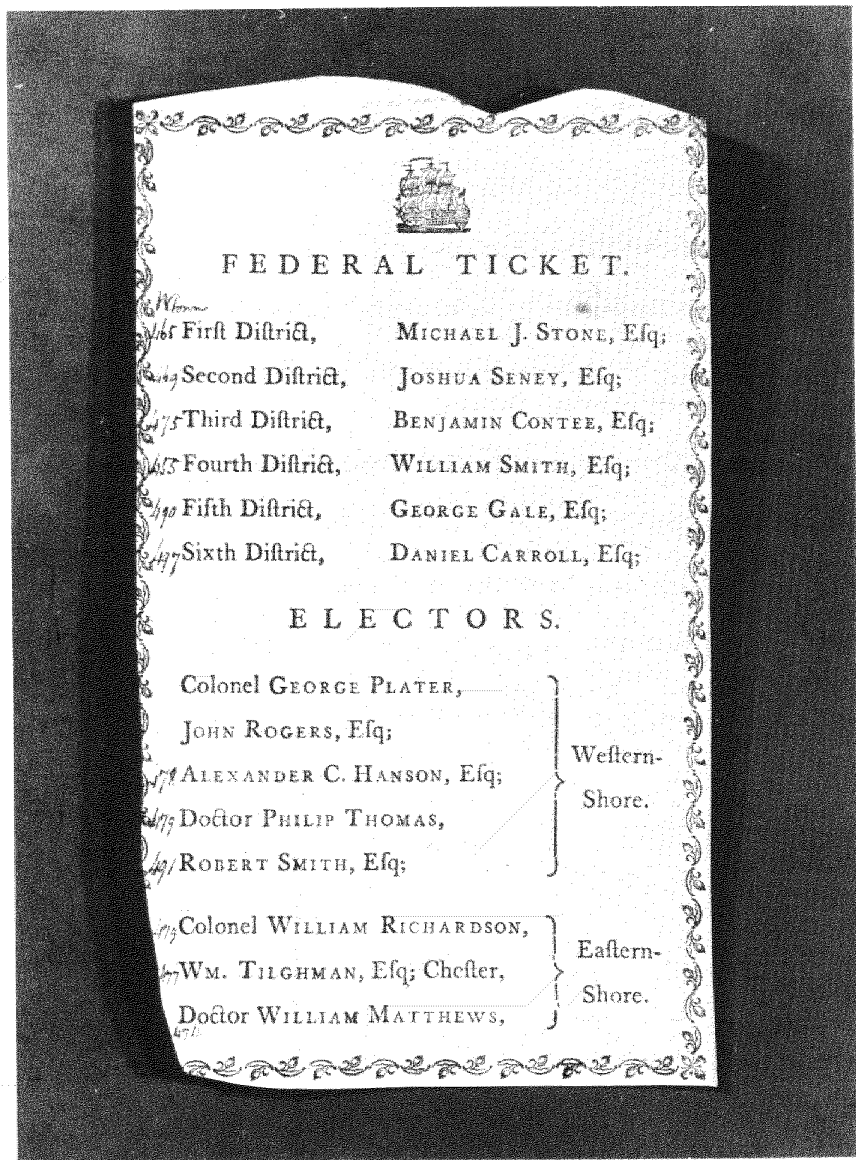 FEDERAL TICKET.
Firſt Diſtrict, MICHAEL J. STONE, Eſq;
Second Diſtrict, JOSHUA SENEY, Eſq;
Third Diſtrict, BENJAMIN CONTEE, Eſq;
Fourth Diſtrict, WILLIAM SMITH, Eſq;
Fifth Diſtrict, GEORGE GALE, Eſq;
Sixth Diſtrict, DANIEL CARROLL, Eſq;
ELECTORS.
Colonel GEORGE PLATER,
JOHN ROGERS, Eſq;
ALEXANDER C. HANSON, Eſq;
Doctor PHILIP THOMAS,
ROBERT SMITH, Eſq;
Weſtern-
Shore.
Colonel WILLIAM RICHARDSON,
WM. TILGHMAN, Eſq; Cheſter,
Doctor WILLIAM MATTHEWS,
Eaſtern-
Shore.